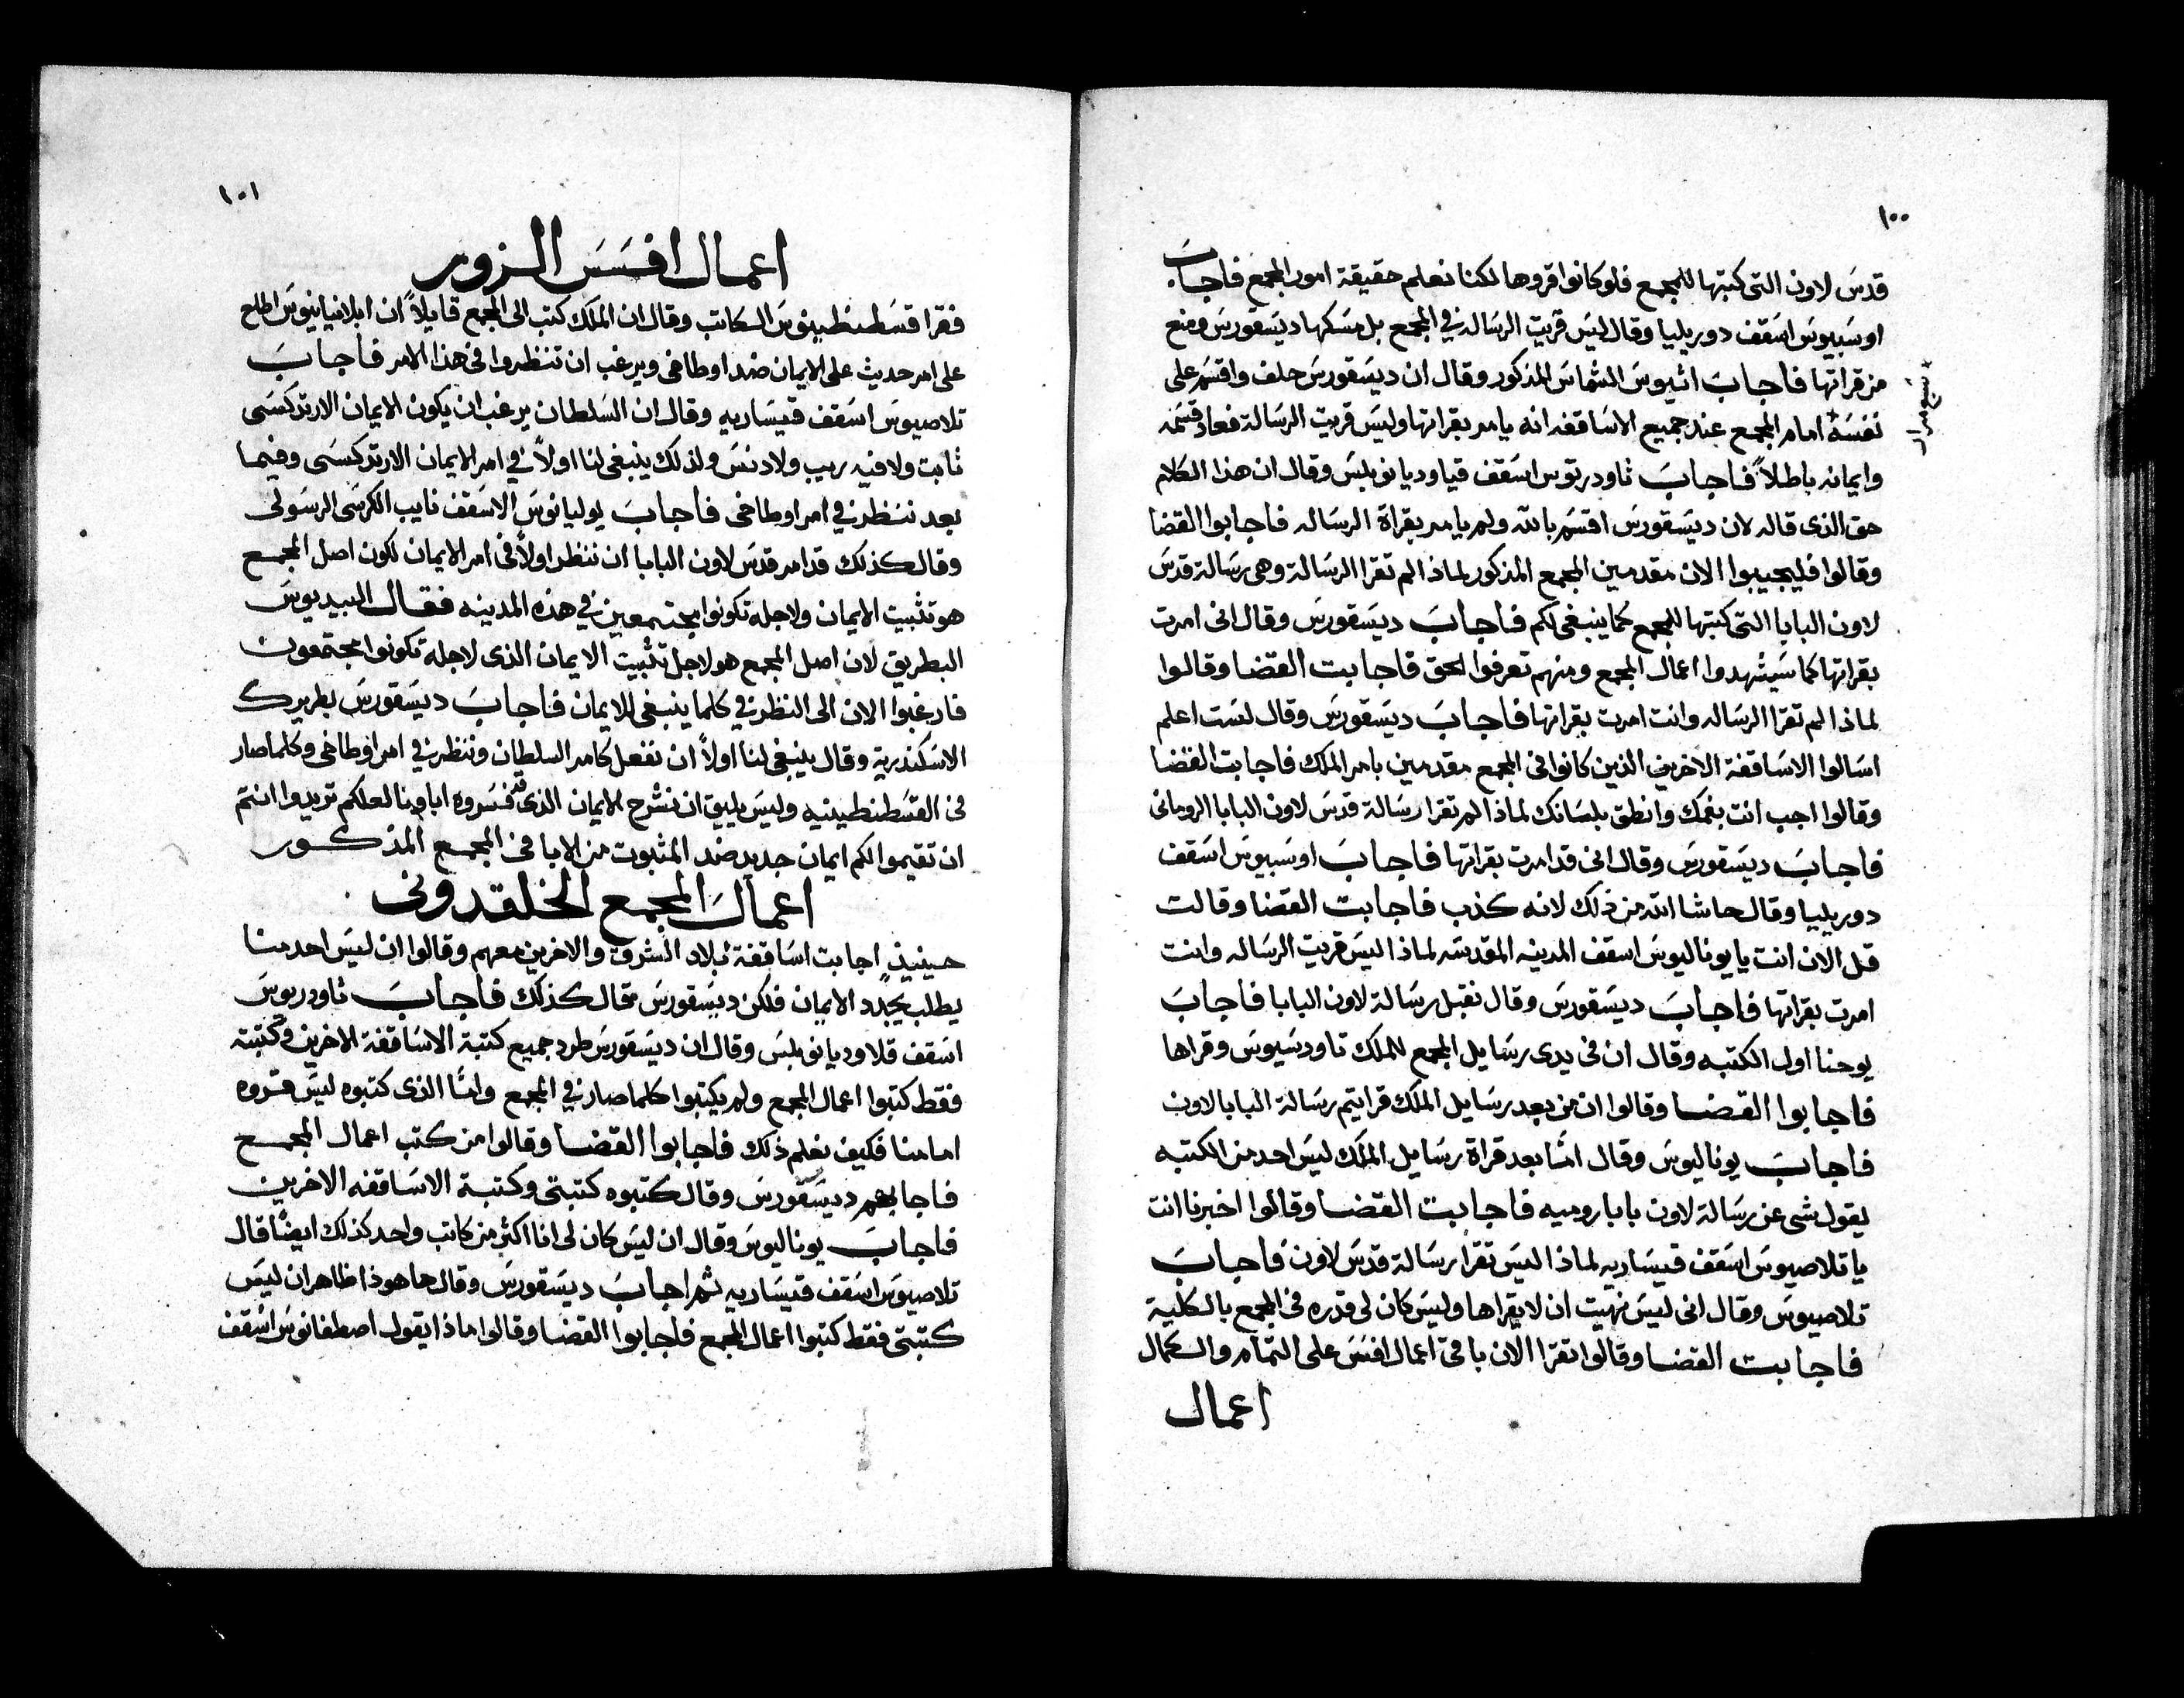 ١٠٠
قدس لاون التى كتبتها للمجمع فلو كانوا قروها لكنا نعلم حقيقة امور المجمع فاجاب
اوسبيوس اسقف دوريليا وقال ليس قريت الرساله في المجمع بل مسكها ديسقورس ومنع
من قراتها فاجاب اتيوس الشماس المذكور وقال ان ديسقورس حلف واقسم على
نفسه + امام المجمع عند جميع الاساقفه انه يامر بقراتها وليس قريت الرسالة فعاد قسمه
+ سبع مرار
وايمانه باطلاً فاجاب ثاودريتوس اسقف قياوديانوبلس وقال ان هذا الكلام
حق الذى قاله لان ديسقورس اقسم بالله ولم يامر بقراة الرساله فاجابوا القضا
وقالوا فليجيبوا الان مقدمين المجمع المذكور لماذا لم تقرا الرسالة وهى رسالة قدس
لاون البابا التى كتبتها للمجمع كما ينبغى لكم فاجاب ديسقورس وقال انى امرت
بقراتها كما سيشهدوا اعمال المجمع ومنهم تعرفوا الحق فاجابت القضا وقالوا
لماذا لم تقرا الرساله وانت امرت بقراتها فاجاب ديسقورس وقال لست اعلم
اسالوا الاساقفة الاخرين الذين كانوا فى المجمع مقدمين بامر الملك فاجابت القضا
وقالوا اجب انت بفمك وانطق بلسانك لماذا لم تقرا رسالة قدس لاون البابا الرومانى
فاجاب ديسقورس وقال انى قد امرت بقراتها فاجاب اوسبيوس اسقف
دوريليا وقال حاشا الله من ذلك لانه كذب فاجابت القضا وقالت
قل الان انت يا يوناليوس اسقف المدينه المقدسه لماذا ليس قريت الرساله وانت
امرت بقراتها فاجاب ديسقورس وقال نقبل رسالة لاون البابا فاجاب
يوحنا اول الكتبه وقال ان فى يدى رسايل المجمع للملك تاودسيوس وقراها
فاجابوا القضا وقالوا ان من بعد رسايل الملك قرايتم رسالة البابا لاون
فاجاب يوناليوس وقال امّا بعد قراة رسايل الملك ليس احد من الكتبه
يقول شى عن رسالة لاون بابا روميه فاجابت القضا وقالوا اخبرنا انت
يا تلاصيوس اسقف قيساريه لماذا ليس تقرا رسالة قدس لاون فاجاب
تلاصيوس وقال انى ليس نهيت ان لا يقراها وليس كان لى قدره فى المجمع بالكلية
فاجابت القضا وقالوا تقرا الان باقى اعمال افسس على التمام والكمال
اعمال
١٠١
اعمال افسس الزور
فقرا قسطنطينوس الكاتب وقال ان الملك كتب الى المجمع قايلاً ان ابلافيانيوس اطلع
على امر حديث على الايمان ضد اوطاخى ويرغب ان تنظروا فى هذا الامر فاجاب
تلاصيوس اسقف قيساريه وقال ان السلطان يرغب ان يكون الايمان الارتدكسى
ثابت ولا فيه ريب ولا دنس ولذلك ينبغى لنا اولاً في امر الايمان الارتدكسى وفيما
بعد ننظر في امر اوطاخى فاجاب يوليانوس الاسقف نايب الكرسى الرسولى
وقال كذلك قد امر قدس لاون البابا ان ننظر اولاً فى امر الايمان لكون اصل المجمع
هو تثبيت الايمان ولاجله تكونوا مجتمعين في هذه المدينه فقال البيديوس
البطريق لان اصل المجمع هو لاجل تثبيت الايمان الذى لاجله تكونوا مجتمعون
فارغبوا الان الى النظر في كلما ينبغى للايمان فاجاب ديسقورس بطريرك
الاسكندرية وقال ينبغى لنا اولاً ان نفعل كامر السلطان وننظر في امر اوطاخى وكلما صار
فى القسطنطينيه وليس يليق ان نشرح الايمان الذى قد فسروه اباونا لعلكم تريدوا انتم
ان تقيموا لكم ايمان جديد ضد المثبوت من الابا فى المجمع المذكور
اعمال المجمع الخلقدونى
حينيذٍ اجابت اساقفة بلاد الشرق والاخرين معهم وقالوا ان ليس احد منا
يطلب يجدد الايمان فلكن ديسقورس قال كذلك فاجاب ثاودريوس
اسقف قلاوديانوبلس وقال ان ديسقورس طرد جميع كتبة الاساقفة الاخرين وكتبته
فقط كتبوا اعمال المجمع ولم يكتبوا كلما صار في المجمع وامّا الذى كتبوه ليس قروه
امامنا فكيف نعلم ذلك فاجابوا القضا وقالوا من كتب اعمال المجمع
فاجابهم ديسقورس وقال كتبوه كتبتى وكتبة الاساقفه الاخرين
فاجاب يوناليوس وقال ان ليس كان لى انا اكثر من كاتب واحد كذلك ايضًا قال
تلاصيوس اسقف قيساريه ثم اجاب ديسقورس وقال ها هوذا ظاهر ان ليس
كتبتى فقط كتبوا اعمال المجمع فاجابوا القضا وقالوا ماذا يقول اصطفانوس اسقف